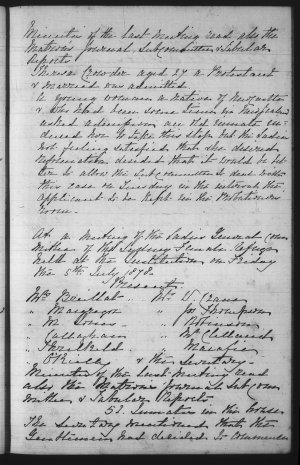 Minutes of the last Meeting read also the
Matrons Journal, Subcommittee & Tabular
Reports
Theresa Crowder aged 27 a Protestant
& Married was admitted.
A young woman a native of Newcastle
& who had been some time in
asked admission an old inmate
denced her to take this step but the Ladies
not feeling satisfied that she desired
Reformation decided that it would be bet
ter to allow the Subcommittee to deal with
this case on Tuesday in the meanwhile the
applicant to be kept in the Probationers
Room.
At a Meeting of the Ladies General Com
mittee of the Sydney Female Refuge
held at the Institution on Friday
the 5th July 1878.
Present
Mrs Mrs
" Thompson
" Robinson
" Callaghan " McClelland
" Threlkeld
O'Reilly & the Secretary
Minutes of the last Meeting read
also the Matrons Journal Subcom
mittee & Tabular Reports
52 Inmates in the House
The Secretary mentioned that the
Gentlemen had decided to commence